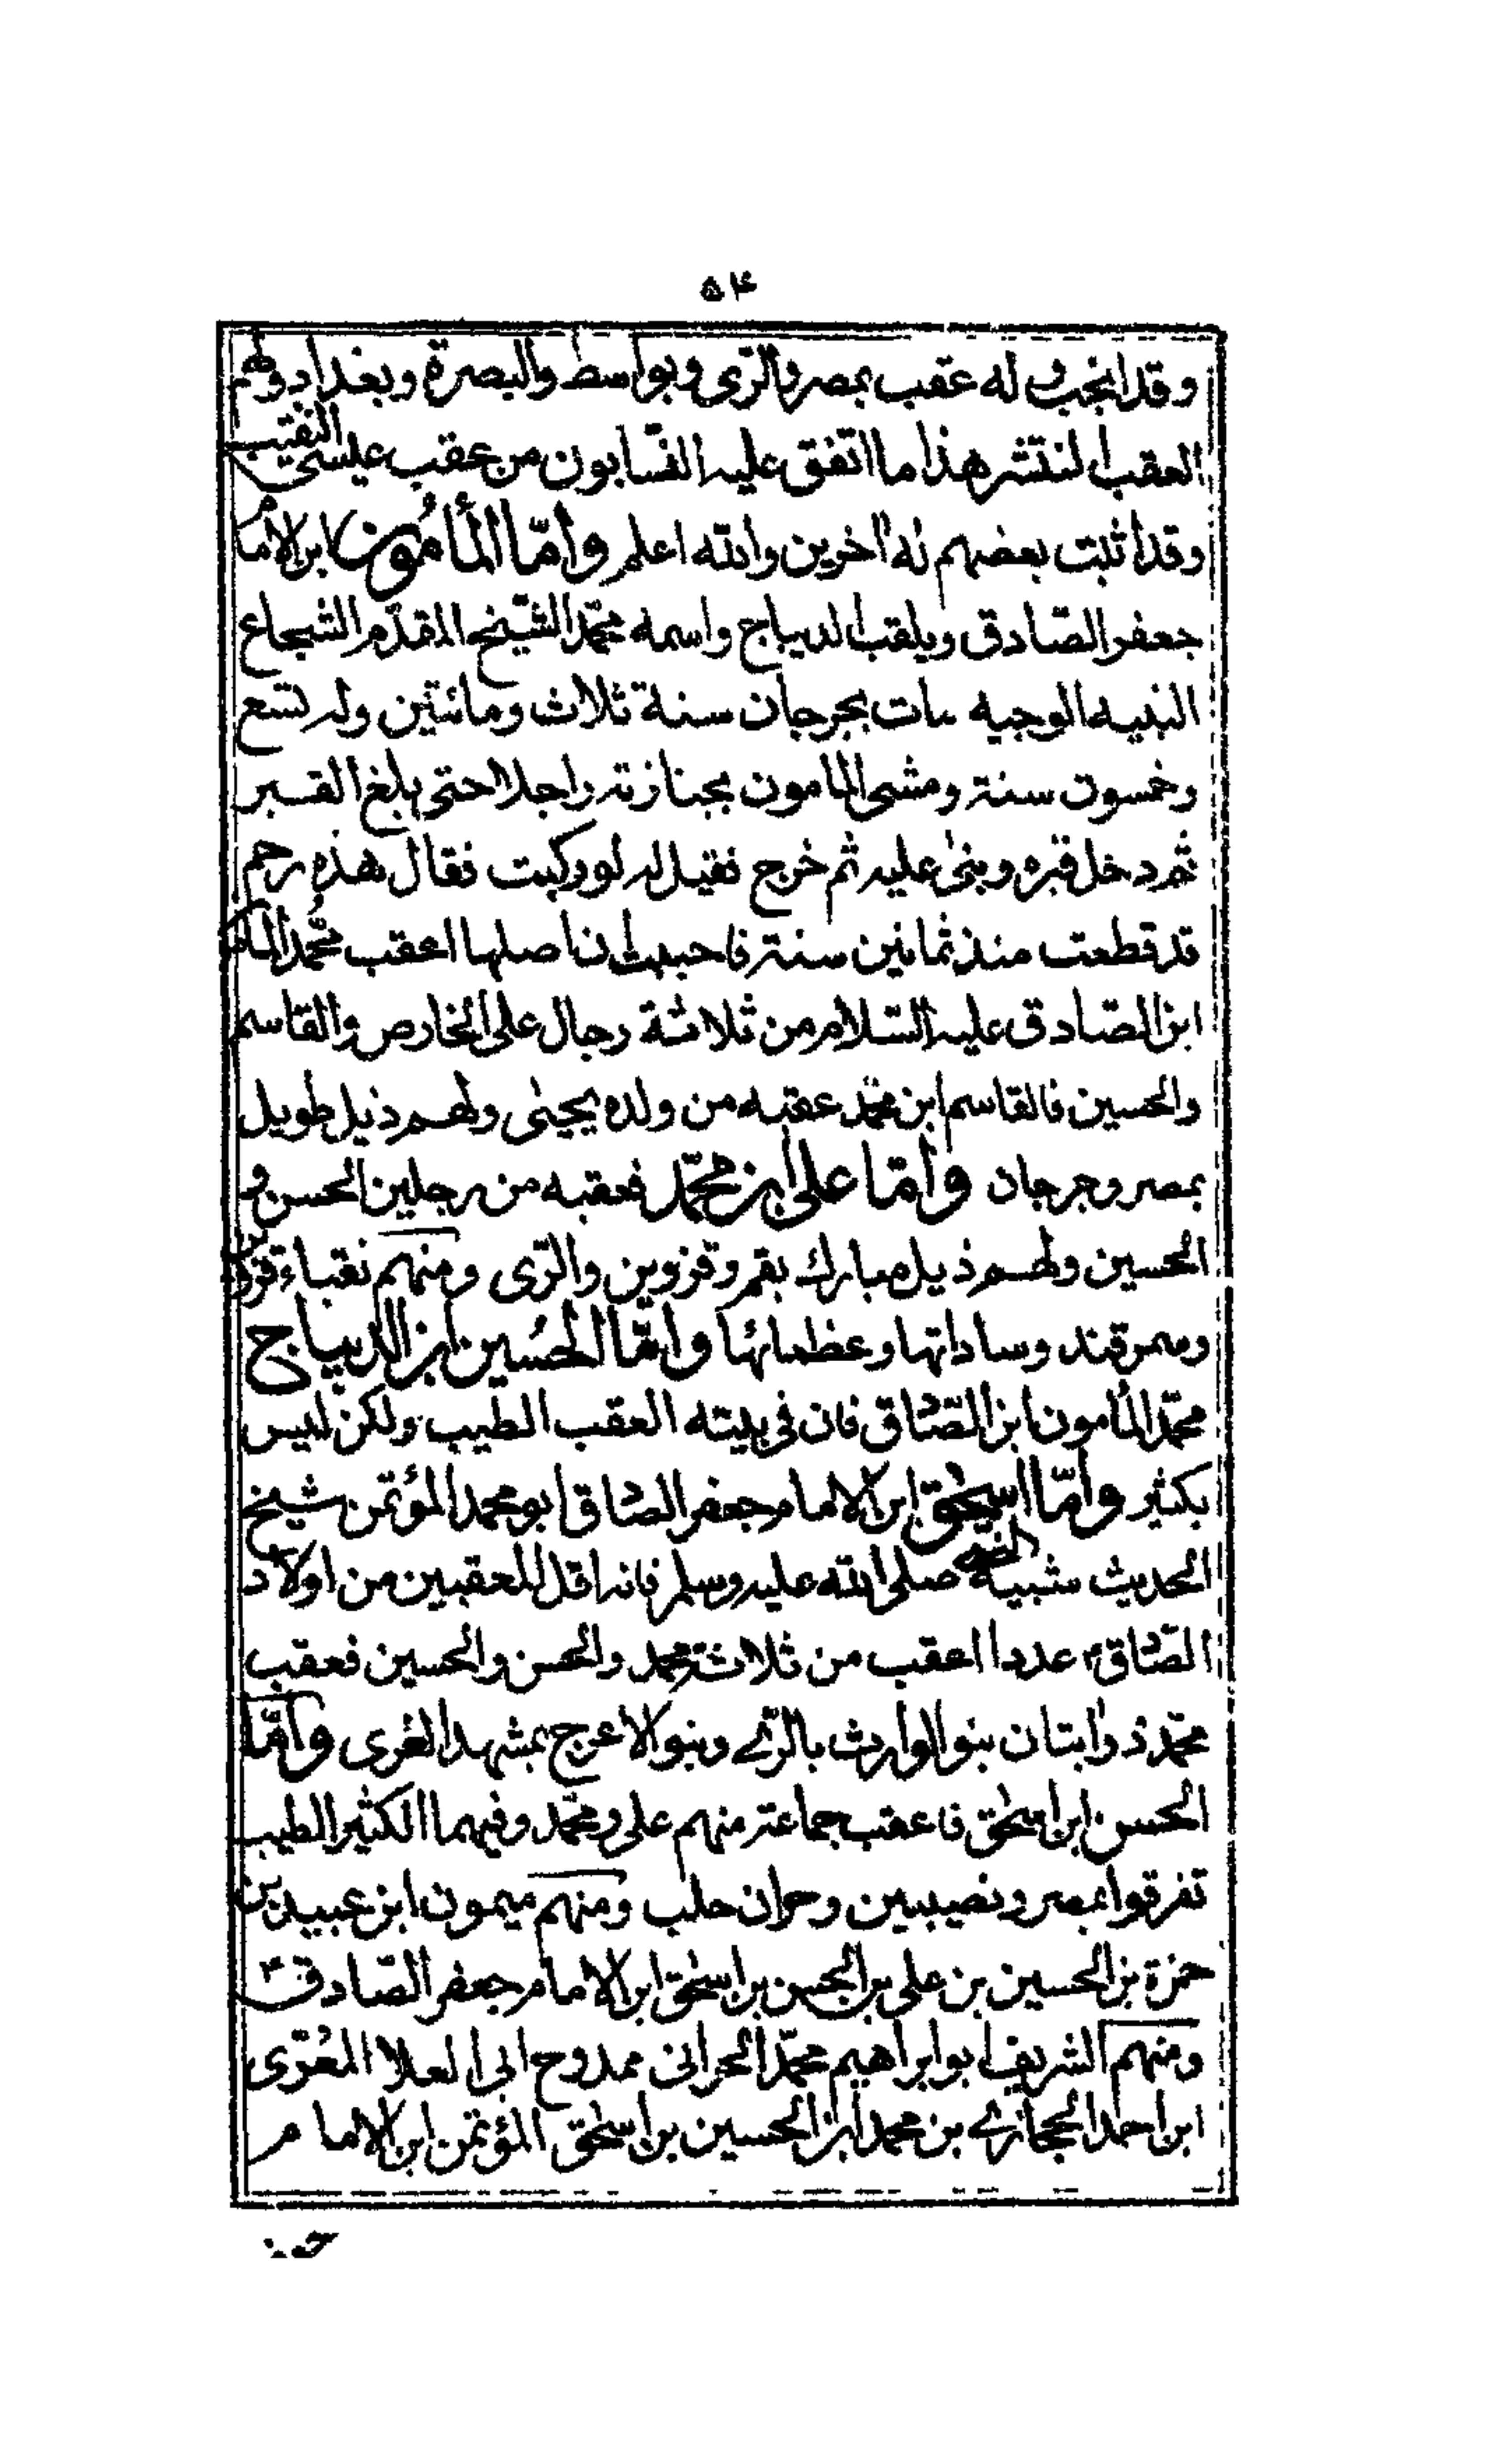 ۵۴
وقد انجب وله عقب بمصر والرى وبواسط والبصرة وبغداد ولهم
العقب المنتشر هذا ما اتفق عليه النسّابون من عقب عيسى النقيب
وقد اثبت بعضهم له اخرين والله اعلم وامّا المأمون ابن الامام
جعفر الصّادق ويلقب الديباج واسمه محمّد الشّيخ المقدّم الشجاع
النبيه الوجيه مات بجرجان سنة ثلاث ومائتين وله تسع
وخمسون سنة ومشى المامون بجنازته راجلا حتى بلغ القبر
ثم دخل قبره وبنى عليه ثم خرج فقيل له لو ركبت فقال هذه رحم
قد قطعت منذ ثمانين سنة فاحببت ان اصلها اعقب محمّد المامون
ابن الصّادق عليه السّلام من ثلاثة رجال على الخارص والقاسم
والحسين فالقاسم ابن محمّد عقبه من ولده يحيى ولهم ذيل طويل
بمصر وجرجان وامّا على ابن محمّد فعقبه من رجلين الحسن و
الحسين ولهم ذيل مبارك بقم وقزوين والرّى ومنهم نقباء قزوين
وسمرقند وساداتها وعظمائها وامّا الحُسين ابن الديباج
محمّد المأمون ابن الصّادق فان فى بيته العقب الطيب ولكن ليس
بكثير وامّا اسحٰق ابن الامام جعفر الصّادق ابو محمد المؤتمن شيخ
الحديث شبيه النبي صلى الله عليه وسلم فانه اقل المعقبين من اولاد
الصّادق عددا اعقب من ثلاثة محمد والحسن والحسين فعقب
محمّد ذوابتان بنو الوارث بالرّى وبنو الاعرج بمشهد الغرى وامّا
الحسن ابن اسحٰق فاعقب جماعة منهم على ومحمّد وفيهما الكثير الطيب
تفرقوا بمصر ونصيبين وحران حلب ومنهم ميمون ابن عبيد بن
حمزة بن الحسين بن على بن الحسن بن اسحٰق ابن الامام جعفر الصّادق
ومنهم الشريف ابو ابراهيم محمّد الحرانى ممدوح ابى العلا المعُرّى
ابن احمد الحجازى بن محمد ابن الحسين بن اسحٰق المؤتمن ابن الامام